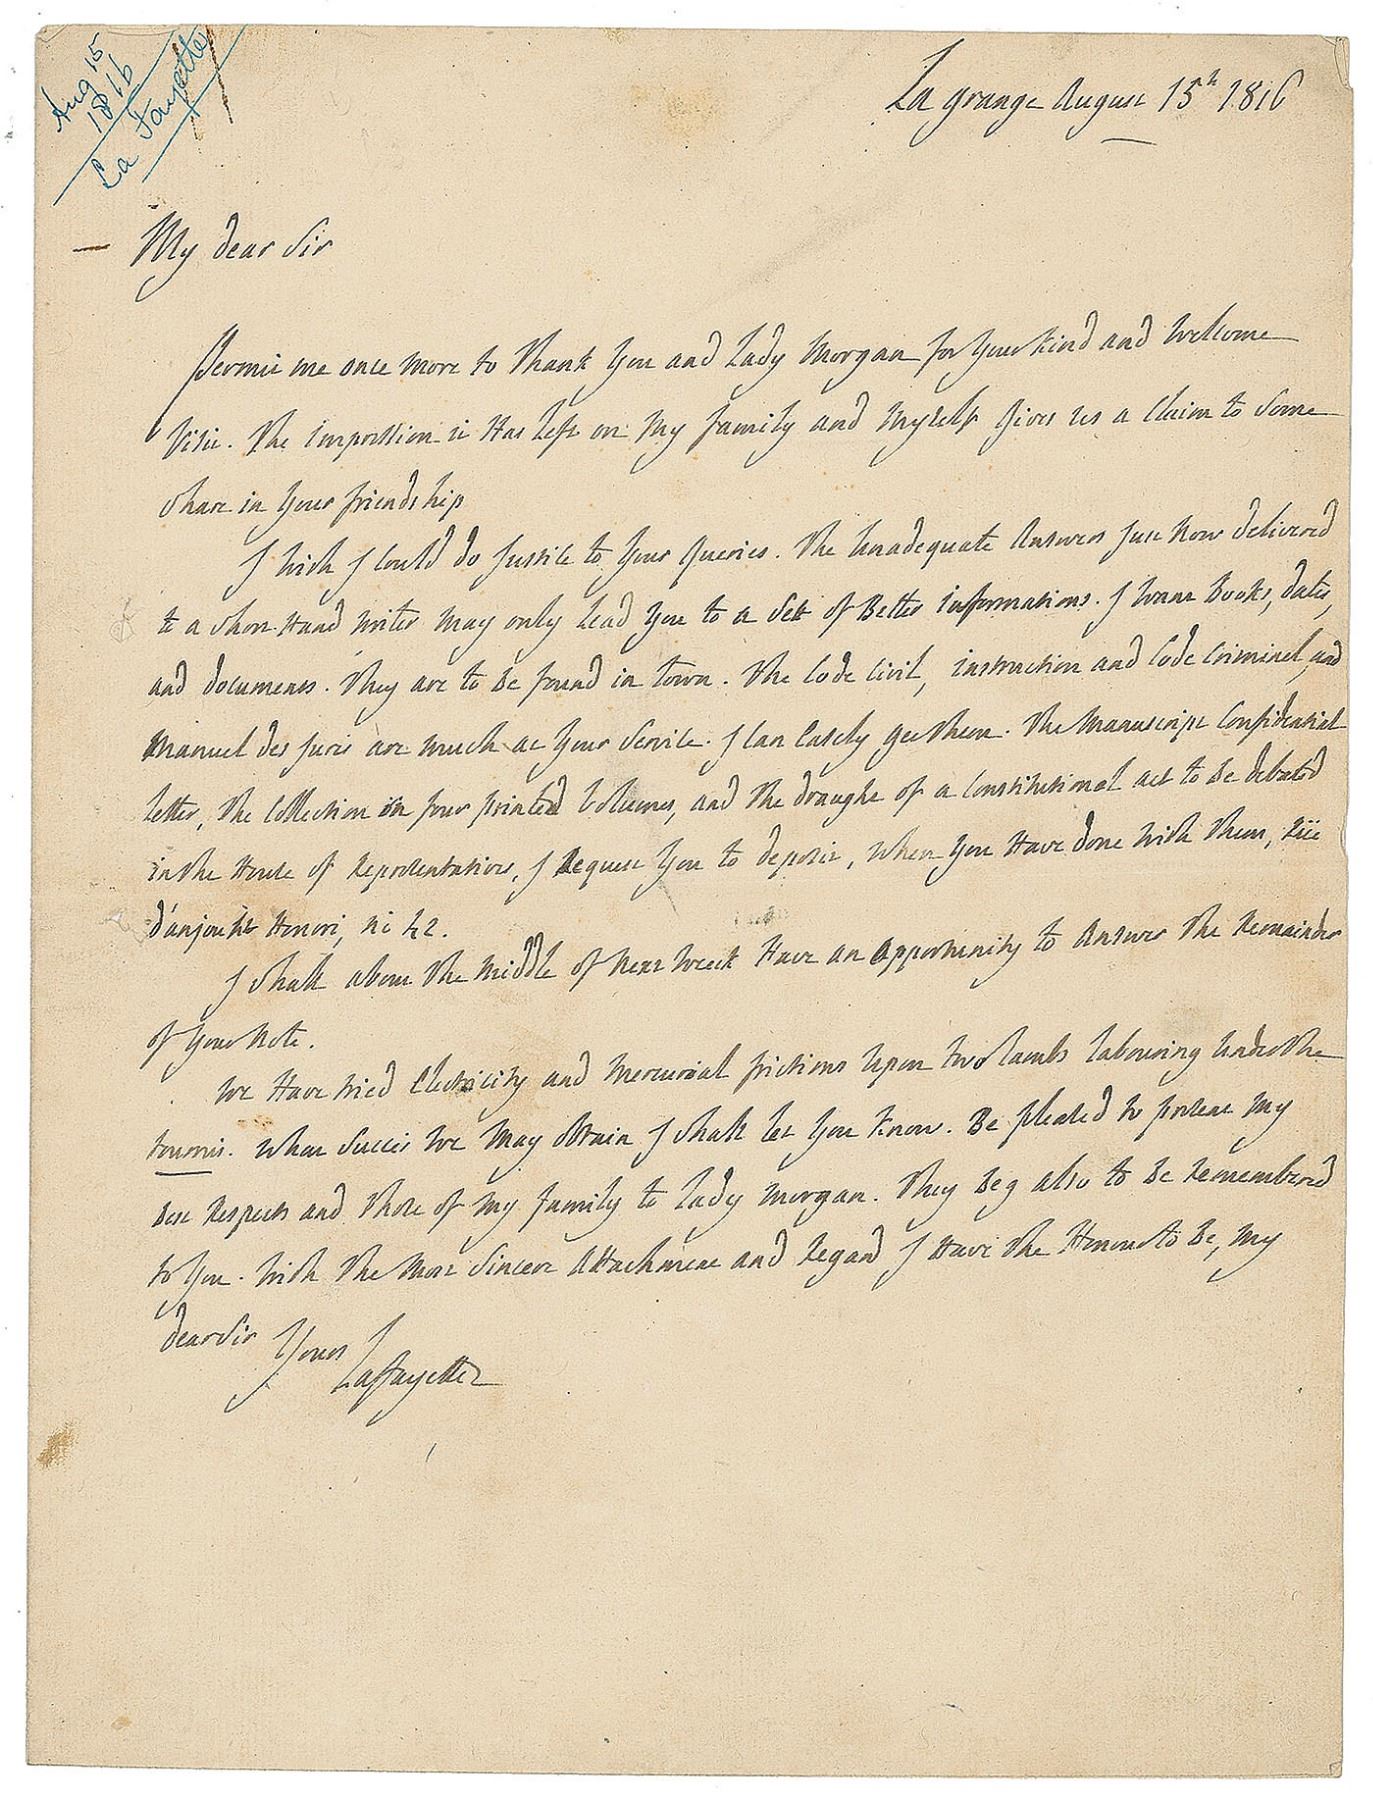 Aug 15
1816
La Fayette
La grange August 15h 1816
My dear Sir
Permit me once more to Thank You and Lady Morgan for Your Kind and Wellcome
Visit. The impression it Has Left on My family and Myself Gives us a Claim to Some
Share in Your friendship
I Wish I Could do Justice to Your Queries. The Unadequate Answers Just Now delivered
to a Short Hand Writer May only Lead You to a Sett of Better informations. I Want Books, dates,
and documents. They are to Be found in town. The Code Civil, instruction and Code Criminel, and
Manuel des Jurés are Much at Your Service. I Can Easely get them. The Manuscript Confidential
Letter, the Collection in four printed Volumes, and the draught of a Constitutional act to Be debated
in the House of Representatives, I Request You to deposit, When You Have done With Them, Rüe
d'anjou St Honoré, No 42.
I Shall about the Middle of Next Week Have an Opportunity to Answer The Remainder
of Your Note.
We Have tried Electricity and Mercurial frictions Upon two Lambs Labouring Under the
tournis. What Succès We May Obtain I Shall let You Know. Be pleased to present My
Best Respects and Those of My family to Lady Morgan. They Beg also to Be Remembered
to You. With The Most Sincere Attachment and Regard I Have the Honour to Be, My
dear Sir
Yours
Lafayette